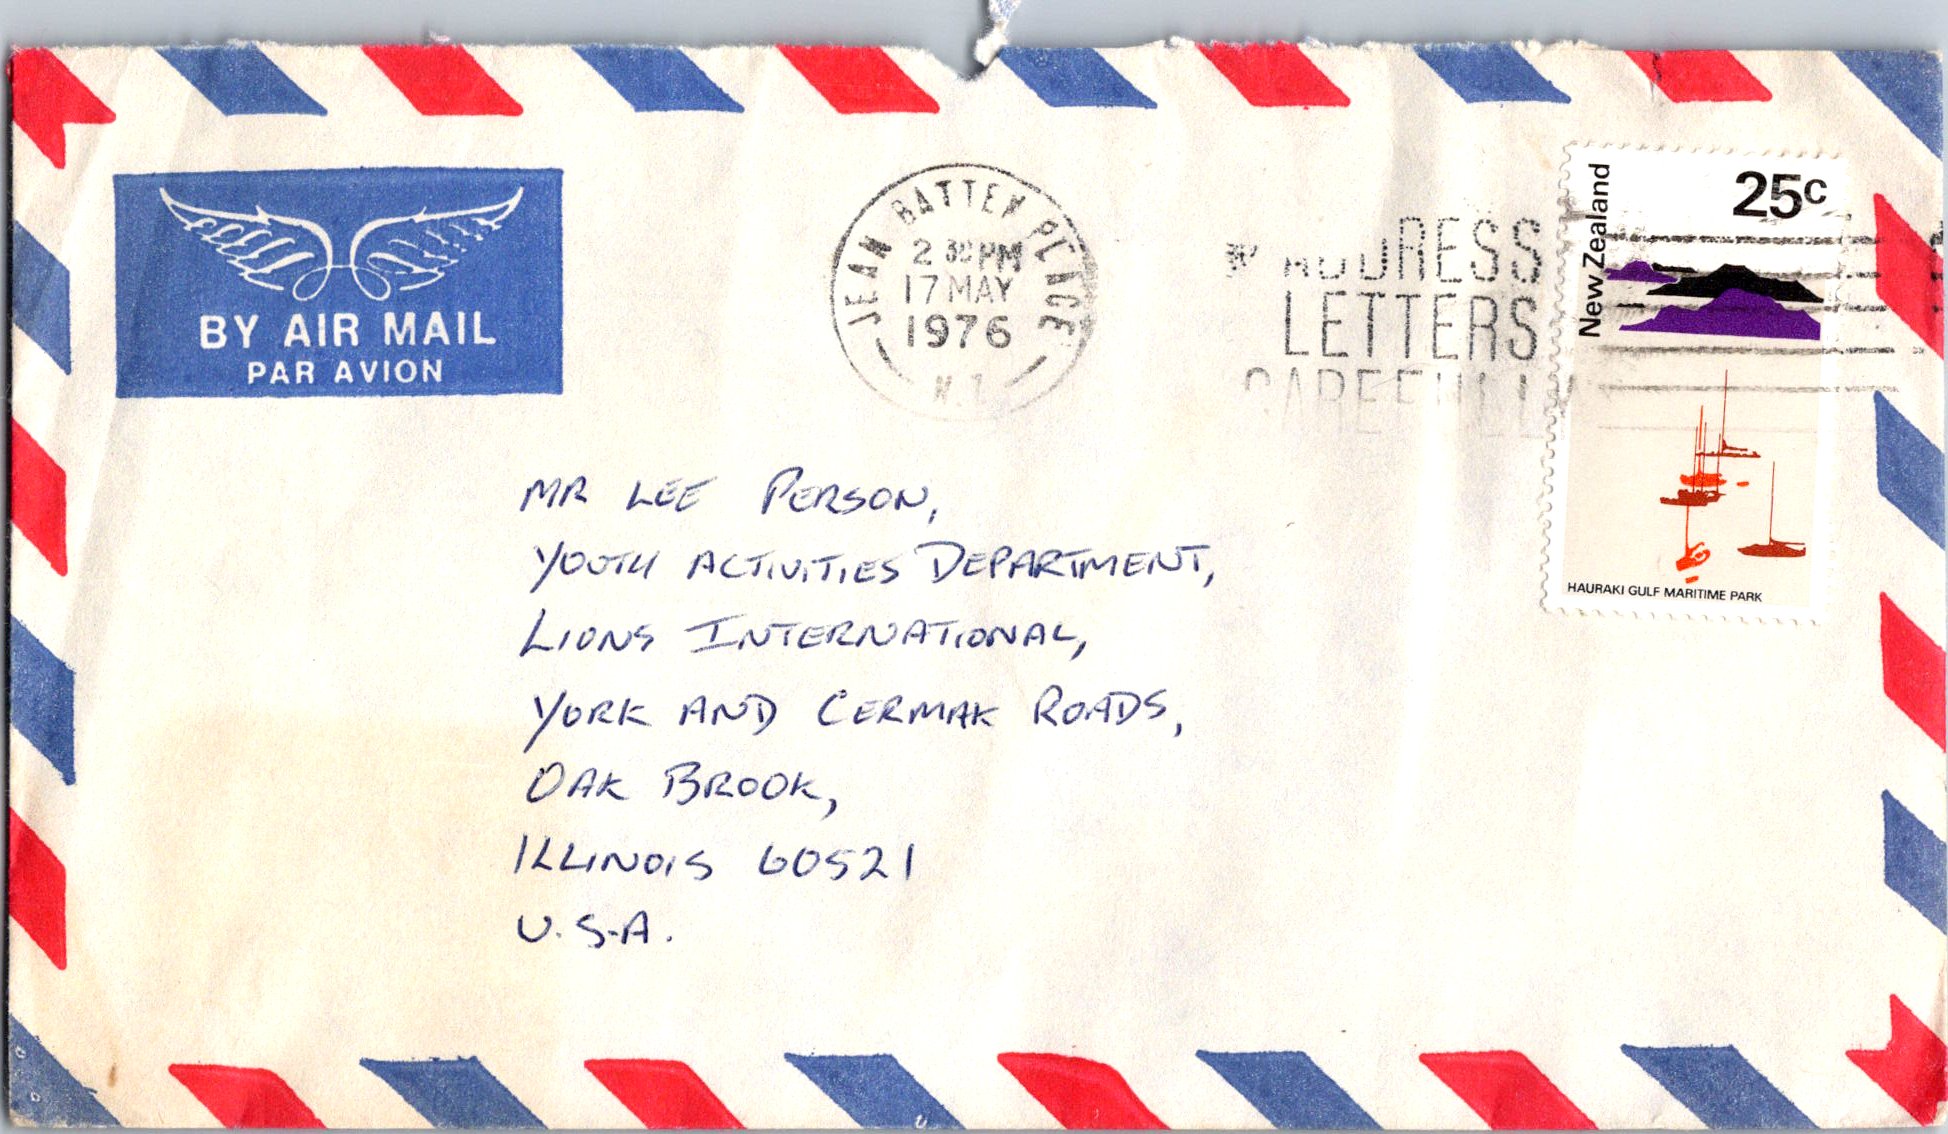 BY AIR MAIL
PAR AVION
JEAN BATTEN PLACE
2 30 PM
17 MAY
1976
N.Z.
ADDRESS
LETTERS
CAREFULLY
New Zealand
25c
HAURAKI GULF MARITIME PARK
MR LEE PERSON,
YOUTH ACTIVITIES DEPARTMENT,
LIONS INTERNATIONAL,
YORK AND CERMAK ROADS,
OAK BROOK,
ILLINOIS 60521
U.S.A.